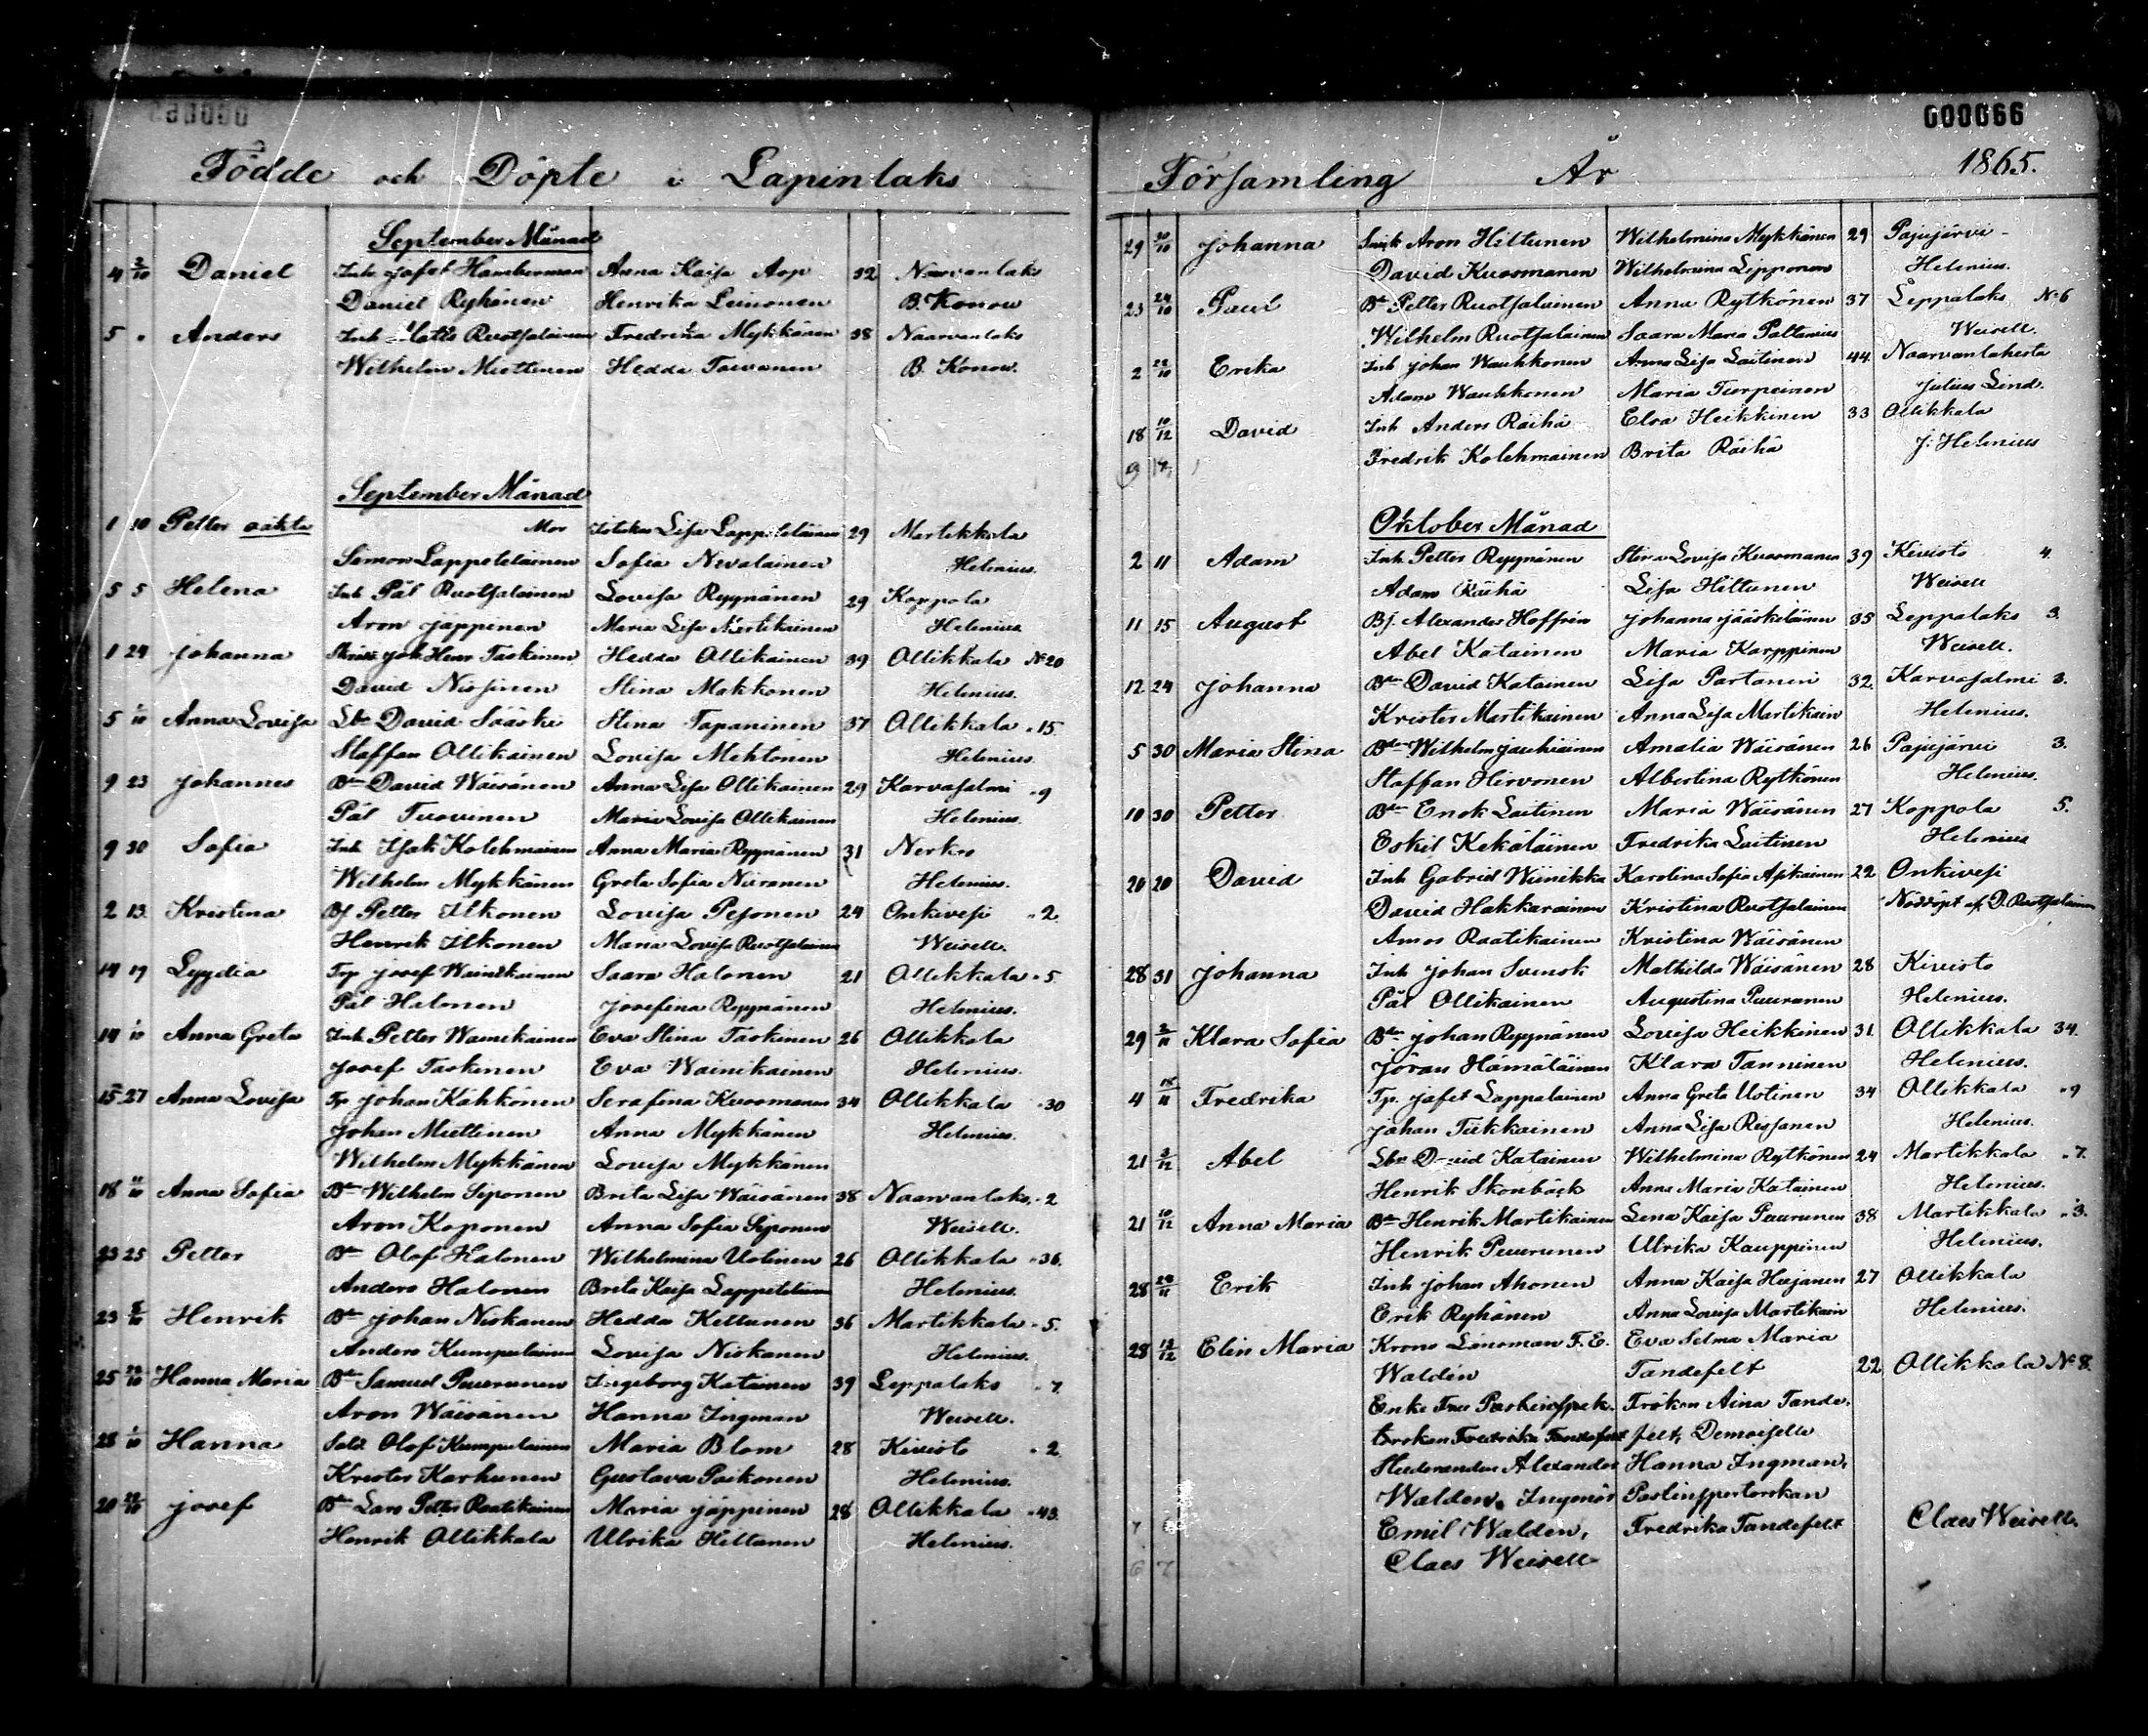 000066
Födde och Döpte i Lapinlaks
Församling År 1865.
September Månad
4 2/10 Daniel Inh Jafet Hamberman Anna Kaisa Asp 32 Narvanlaks
Daniel Ryhänen Henrika Leinonen B. Konow
5 " Anders Inh Matts Ruotsalainen Fredrika Mykkänen 38 Naarvanlaks
Wilhelm Miettinen Hedda Toivanen B. Konow.
September Månad
1 10 Petter oäkta Mor Lisa Lappeteläinen 29 Martikkala
Simon Lappeteläinen Sofia Nevalainen Helenius.
5 5 Helena Inh Pål Ruotsalainen Lovisa Ryynänen 29 Koppola
Aron Jäppinen Maria Lisa Martikainen Helenius
1 24 Johanna Joh Henr Taskinen Hedda Ollikainen 39 Ollikkala No 20
David Nissinen Stina Makkonen Helenius.
5 1/10 Anna Lovisa Lbr David Sääski Stina Tapaninen 37 Ollikkala " 15
Staffan Ollikainen Lovisa Mehtonen Helenius.
9 23 Johannes Bdn David Wäisänen Anna Lisa Ollikainen 29 Karvasalmi " 9
Pål Tuovinen Maria Lovisa Ollikainen Helenius.
9 30 Sofia Inh Isak Kolehmainen Anna Maria Ryynänen 31 Nerko
Wilhelm Mykkänen Greta Sofia Niiranen Helenius.
2 13 Kristina Bj Petter Ilkonen Lovisa Pesonen 24 Onkivesi " 2
Henrik Ilkonen Maria Lovisa Ruotsalainen Weisell.
14 19 Lyydia Trp Josef Wainikainen Saara Halonen 21 Ollikkala " 5
Pål Halonen Josefina Ryynänen Helenius.
14 1/10 Anna Greta Inh Petter Wainikainen Eva Stina Taskinen 26 Ollikkala
Josef Taskinen Eva Wainikainen Helenius.
15 27 Anna Lovisa Tp Johan Kähkönen Serafina Kuosmanen 34 Ollikkala " 30
Johan Miettinen Anna Mykkänen Helenius.
Wilhelm Mykkänen Lovisa Mykkänen
18 11/10 Anna Sofia Bdn Wilhelm Siponen Brita Lisa Wäisänen 38 Naarvanlaks " 2
Aron Koponen Anna Sofia Siponen Weisell.
23 25 Petter Bdn Olof Halonen Wilhelmina Uotinen 26 Ollikkala " 36.
Anders Halonen Brita Kaisa Lappeteläinen Helenius.
23 8/10 Henrik Bdn Johan Niskanen Hedda Kettunen 36 Martikkala " 5.
Anders Kumpulainen Lovisa Niskanen Helenius.
25 29/10 Hanna Maria Bdn Samuel Puurunen Ingeborg Katainen 39 Leppälaks " 7
Aron Wäisänen Hanna Ingman Weisell.
28 1/10 Hanna Sold Olof Kumpulainen Maria Blom 28 Kivisto " 2
Krister Karhunen Gustava Poikonen Helenius.
20 22/10 Josef Bdn Lars Petter Raatikainen Maria Jäppinen 28 Ollikkala " 43.
Henrik Ollikkala Ulrika Hiltunen Helenius.
29 30/10 Johanna Aron Hiltunen Wilhelmina Mykkänen 29 Pajujärvi
David Kuosmanen Wilhelmina Lipponen Helenius.
23 24/10 Paul Bdn Petter Ruotsalainen Anna Rytkönen 37 Leppälaks No 6
Wilhelm Ruotsalainen Saara Maria Paltanius Weisell.
2 22/10 Erika Inh Johan Wauhkonen Anna Lisa Laitinen 44 Naarvanlahesta
Adam Wauhkonen Maria Turpeinen Julius Lind.
18 10/12 David Inh Anders Räihä Elsa Heikkinen 33 Ollikkala
Fredrik Kolehmainen Brita Räihä J. Helenius
Oktober Månad
2 11 Adam Inh Petter Ryynänen Stina Lovisa Kuosmanen 39 Kivisto 4.
Adam Räihä Lisa Hiltunen Weisell
11 15 August Bj. Alexander Hoffrén Johanna Jääskeläinen 35 Leppälaks 3.
Abel Katainen Maria Karppinen Weisell.
12 24 Johanna Bdn David Katainen Lisa Partanen 32. Karvasalmi 3.
Krister Martikainen Anna Lisa Martikain Helenius.
5 30 Maria Stina Bdn Wilhelm Jauhiainen Amalia Wäisänen 26 Pajujärvi 3.
Staffan Hirvonen Albertina Rytkönen Helenius.
10 30 Petter Bdn Enok Laitinen Maria Wäisänen 27 Koppola 5.
Eskil Kekäläinen Fredrika Laitinen Helenius
20 20 David Inh Gabriel Wiinikka Karolina Sofia Asikainen 22 Onkivesi
David Hakkarainen Kristina Ruotsalainen Nöddöpt af D. Ruotsalainen
Amos Raatikainen Kristina Wäisänen
28 31 Johanna Inh Johan Svensk Mathilda Wäisänen 28 Kivisto
Pål Ollikainen Augustina Puuranen Helenius.
29 2/11 Klara Sofia Bdn Johan Ryynänen Lovisa Heikkinen 31 Ollikkala 34.
Jöran Hämäläinen Klara Tanninen Helenius.
4 18/11 Fredrika Tp. Jafet Lappalainen Anna Greta Uotinen 34 Ollikkala " 9
Johan Tikkainen Anna Lisa Rissanen Helenius.
21 3/12 Abel Lbr David Katainen Wilhelmina Rytkönen 24 Martikkala " 7.
Henrik Skonbäck Anna Maria Katainen Helenius.
21 10/12 Anna Maria Bdn Henrik Martikainen Lena Kaisa Puurunen 38 Martikkala " 3.
Henrik Puurunen Ulrika Kauppinen Helenius.
28 28/11 Erik Inh Johan Ahonen Anna Kaisa Huijanen 27 Ollikkala
Erik Ryhänen Anna Lovisa Martikain Helenius.
28 12/12 Elin Maria Krono Länsman F. E. Eva Selma Maria
Waldén Tandefelt 22 Ollikkala No 8.
Enke Fru Postinspek- Fröken Aina Tande-
torskan Fredrika Tandefelt felt, Demoiselle
Studeranden Alexander Hanna Ingman,
Walden, Ingeniör Postinspektorskan
Emil Walden, Fredrika Tandefelt Claes Weisell.
Claes Weisell